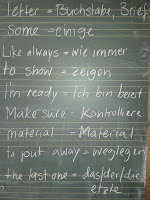 letter = Buchstabe, Brief
Some = einige
Like always = wie immer
to show = zeigen
I'm ready = Ich bin bereit
Make sure = Kontrolliere
material = Material
to put away = weglegen
the last one = das/der/die
etzte